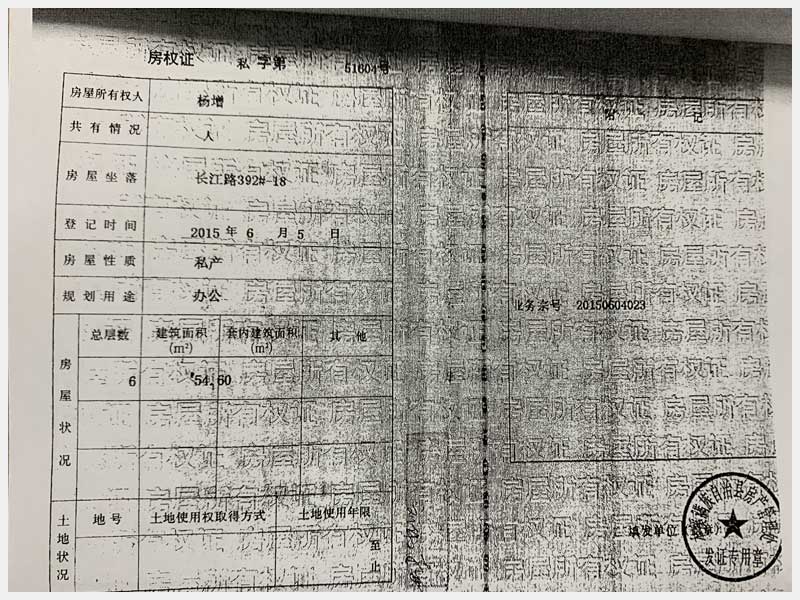 房权证 私 字第 51604号
房屋所有权人 杨增
共有情况 人
房屋坐落 长江路392#-18
登记时间 2015 年 6 月 5 日
房屋性质 私产
规划用途 办公
房屋状况
总层数 建筑面积(m²) 套内建筑面积(m²) 其 他
6 54.60
土地状况
地号 土地使用权取得方式 土地使用年限
至
止
附 记
业务宗号 20150604023
填发单位
发证专用章